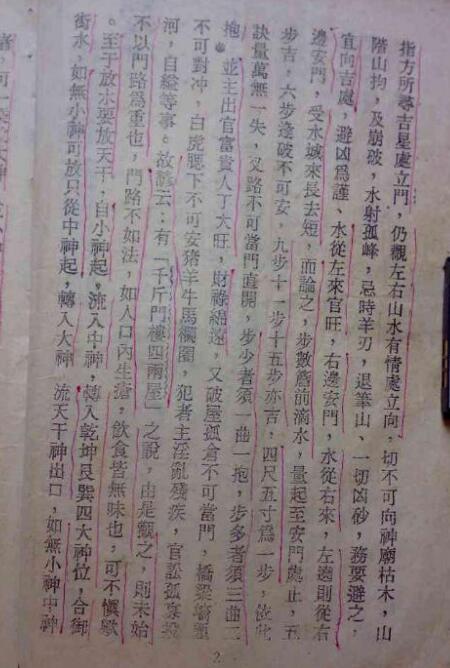 指方所尋吉星處立門，仍觀左右山水有情處立向，切不可向神廟枯木，山
階山拘，及崩破，水射孤峰，忌時羊刃，退筆山、一切凶砂，務要避之，
宜向吉處，避凶爲謹、水從左來官旺，右邊安門，水從右來，左邊則從右
邊安門，受水城來長去短，而論之，步數簷前滴水，量起至安門處止，五
步吉，六步逢破不可安，九步十一步十五步亦吉，四尺五寸爲一步，依此
訣量萬無一失，又路不可當門直開，步少者須一曲一抱，步多者須三曲二
抱。並主出官富貴人丁大旺，財祿綿遠，又破屋孤倉不可當門，橋梁
不可對冲，白虎腮下不可安猪羊牛馬欄圈，犯者主淫亂殘疾，官訟孤寡投
河，自縊等事。故諺云：有「千斤門樓四兩屋」之說，由是觀之，則未始
不以門路爲重也，門路不如法，如人口內生瘡，飲食皆無味也，可不愼歟
。至于放水要放天干，自小神起，流入中神，轉入乾坤艮巽四大神位，合御
街水，如無小神可放只從中神起，轉入大神 流天干神出口，如無小神中神
2